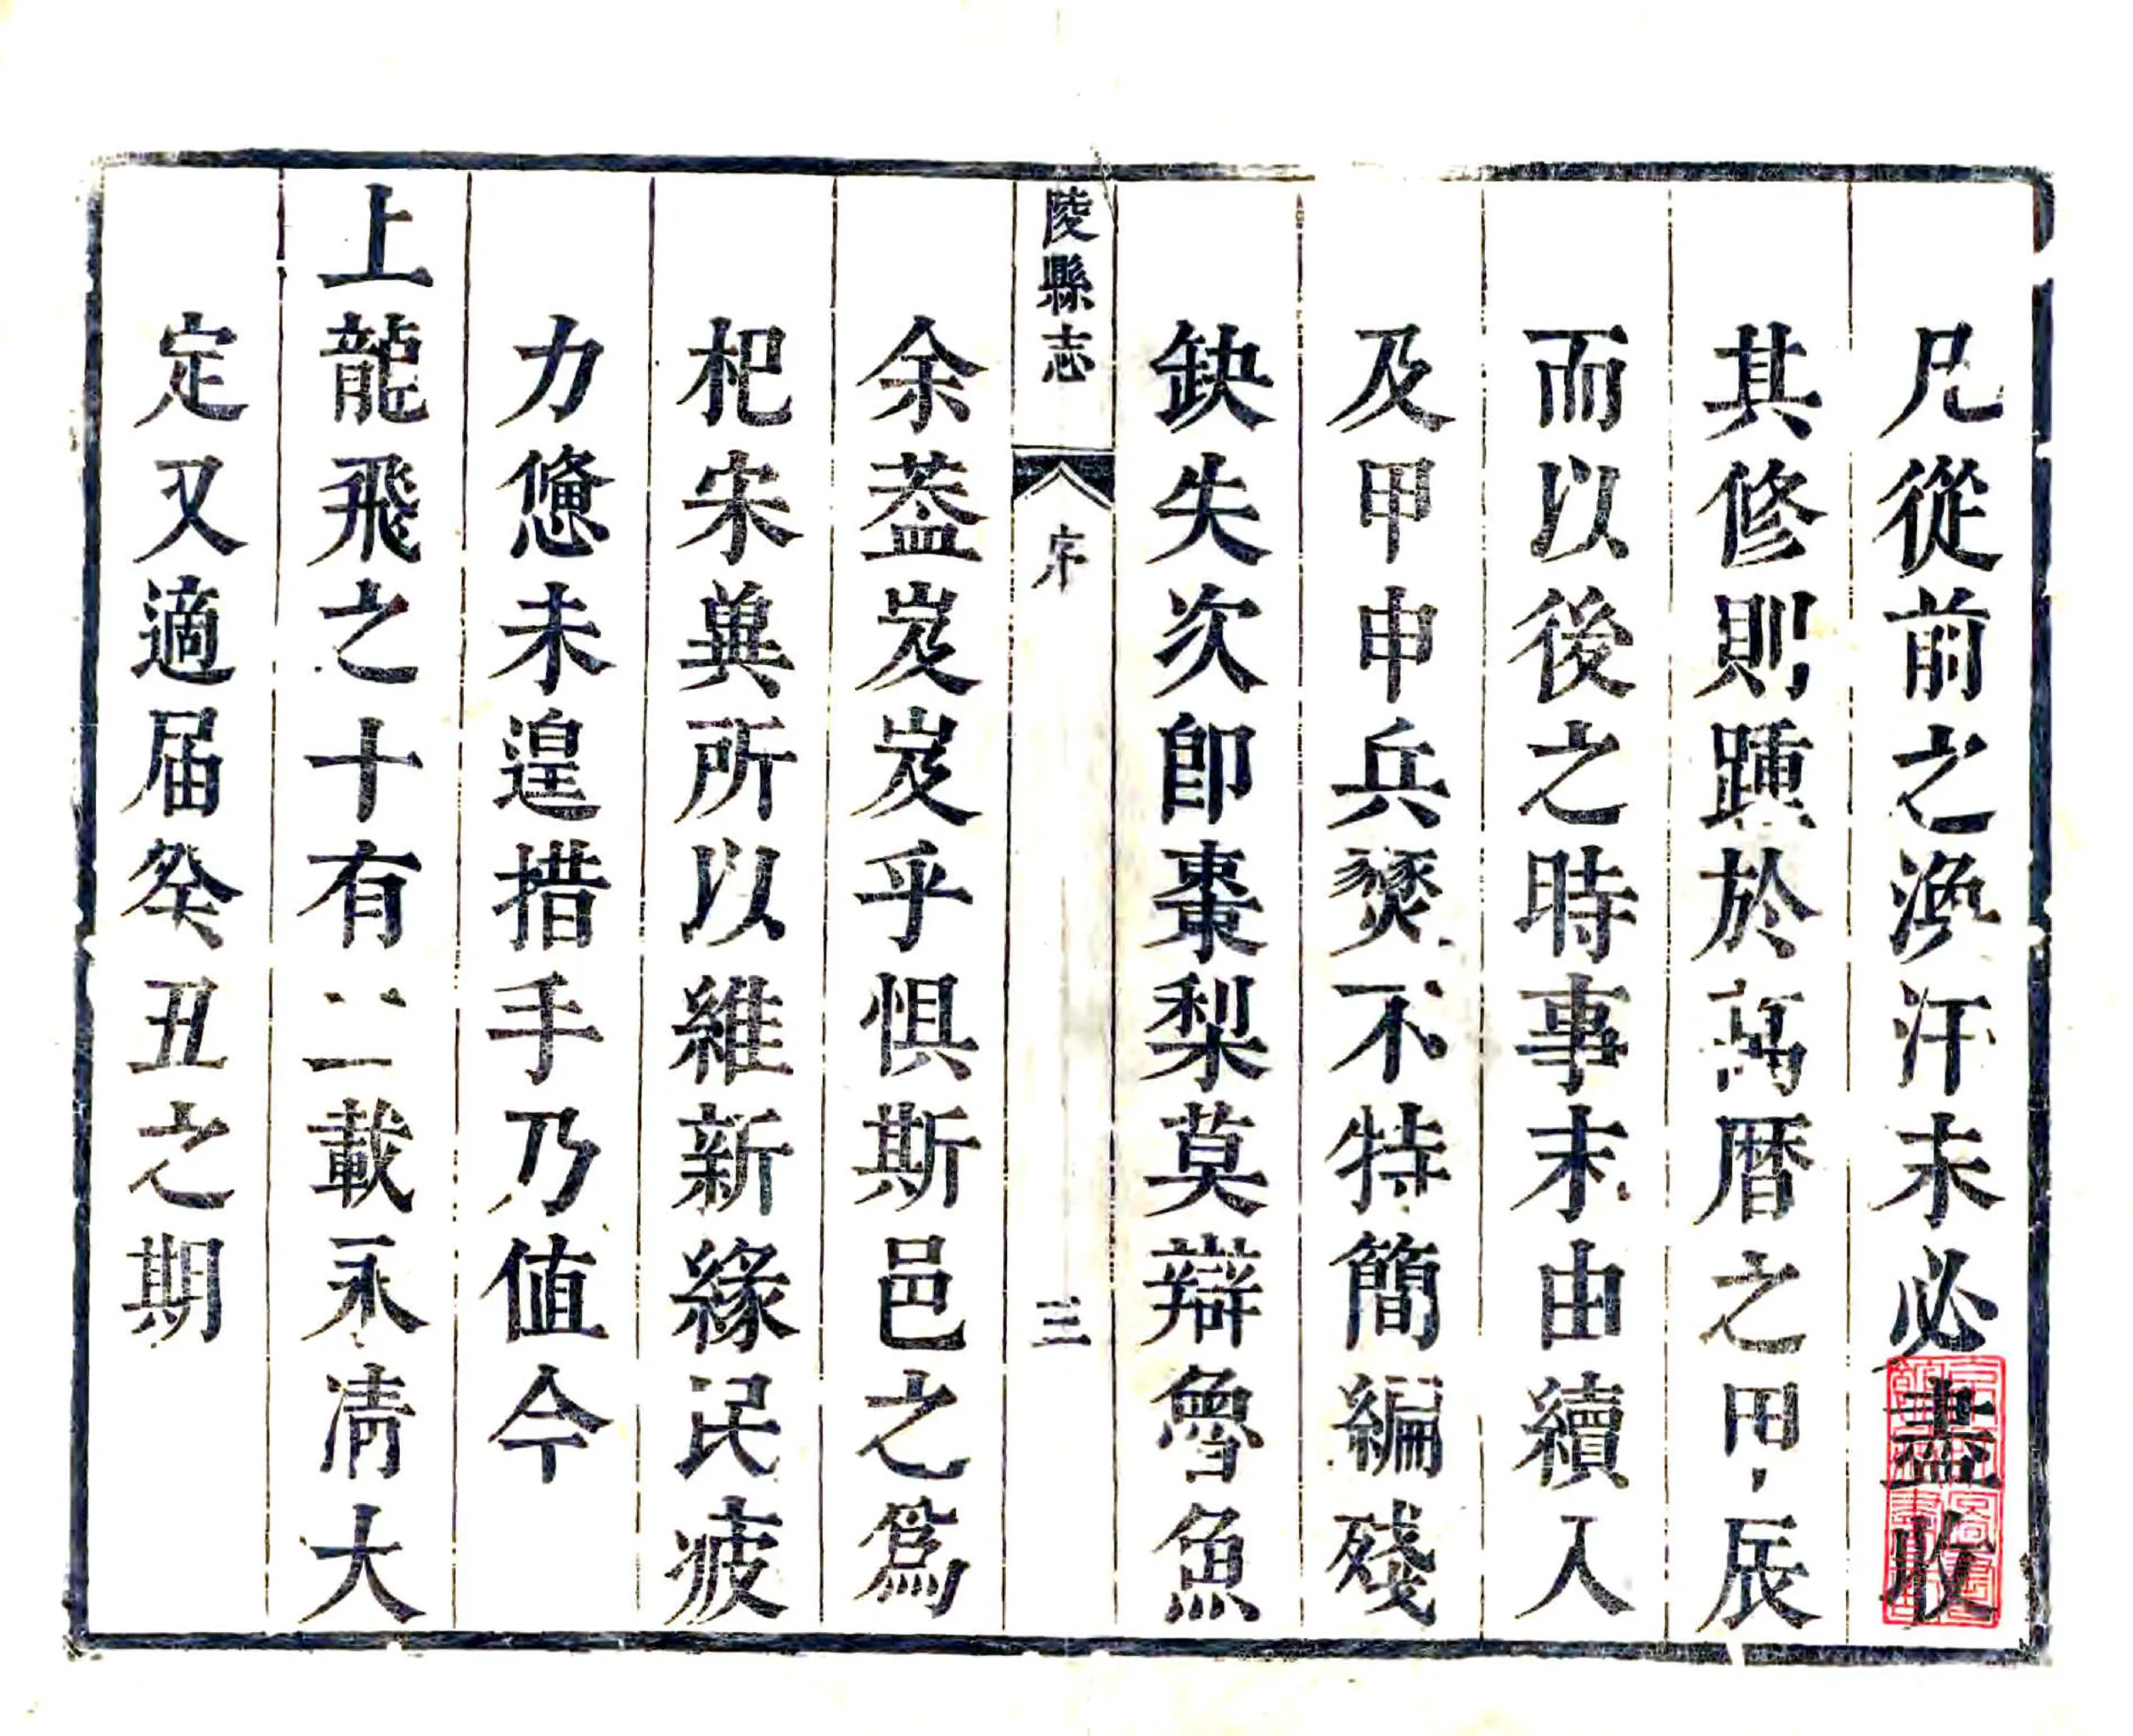 凡從前之渙汗未必盡收
其修則踵於萬曆之甲辰
而以後之時事末由續入
及甲申兵燹不特簡編殘
缺失次卽棗梨莫辯魯魚
陵縣志
序
三
余葢岌岌乎惧斯邑之爲
杞宋兾所以維新緣民疲
力憊未遑措手乃值今
上龍飛之十有二載永淸大
定又適届癸丑之期